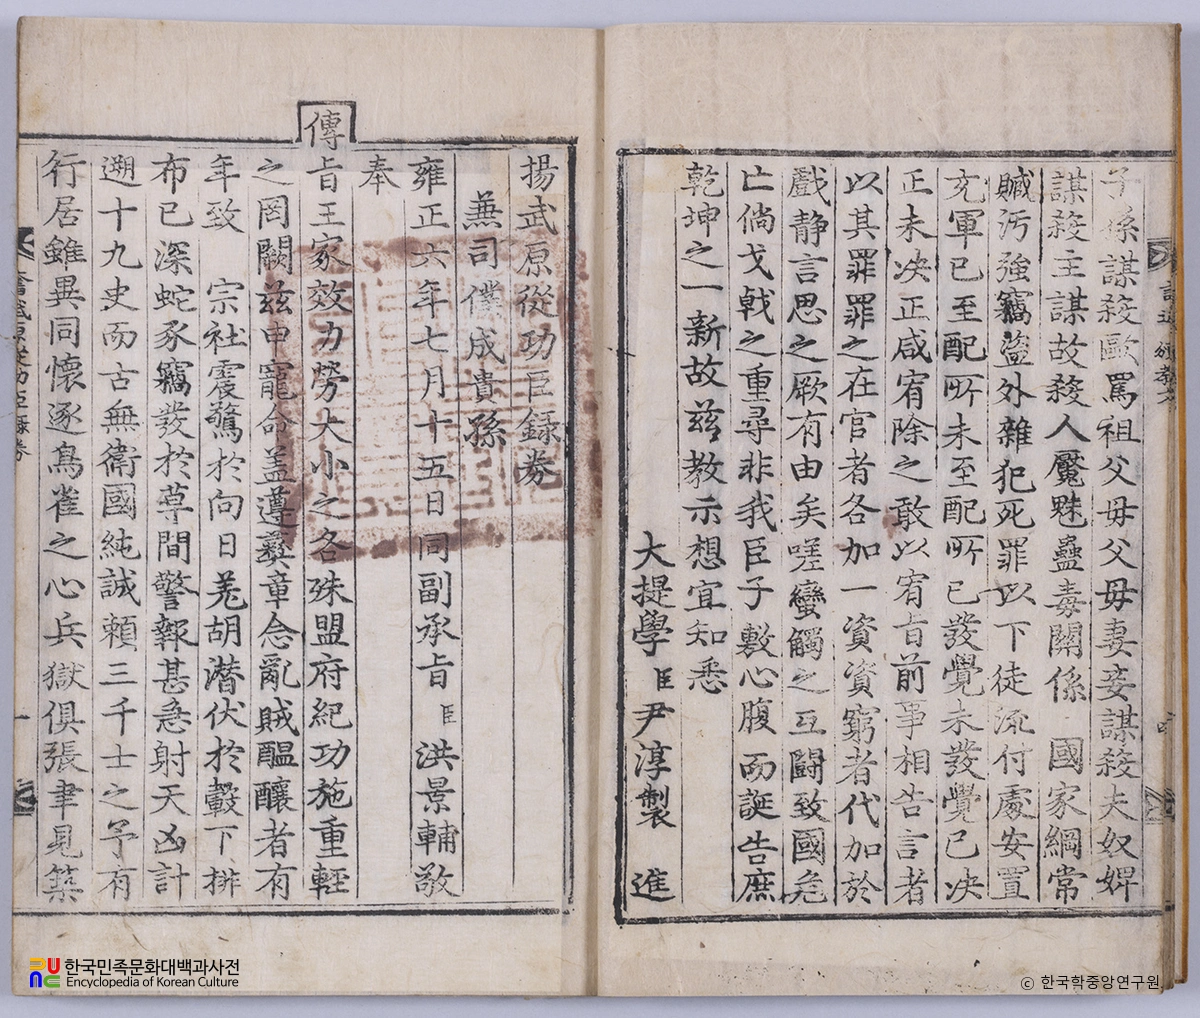 子孫謀殺歐罵祖父母父母妻妾謀殺夫奴婢
謀殺主謀故殺人魘魅蠱毒關係 國家綱常
贓汚強竊盜外雜犯死罪以下徒流付處安置
充軍已至配所未至配所已發覺未發覺已决
正未决正咸宥除之敢以宥旨前事相告言者
以其罪罪之在官者各加一資資窮者代加於
戲静言思之厥有由矣嗟蠻觸之互鬪致國危
亡倘戈戟之重尋非我臣子敷心腹而誕告庶
乾坤之一新故玆教示想宜知悉
大提學臣尹淳製 進
揚武原從功臣錄券
兼司僕成貴孫
雍正六年七月十五日同副承旨臣洪景輔敬
奉
傳旨王家效力勞大小之各殊盟府紀功施重輕
之罔闕玆申寵命盖遵彛章念亂賊醞釀者有
年致 宗社震驚於向日羌胡潜伏於轂下排
布已深蛇豕竊發於草間警報甚急射天凶計
遡十九史而古無衛國純誠賴三千士之予有
行居雖異同懷逐鳥雀之心兵獄俱張聿見築
揚武原從功臣錄券
一
한국민족문화대백과사전
Encyclopedia of Korean Culture
© 한국학중앙연구원